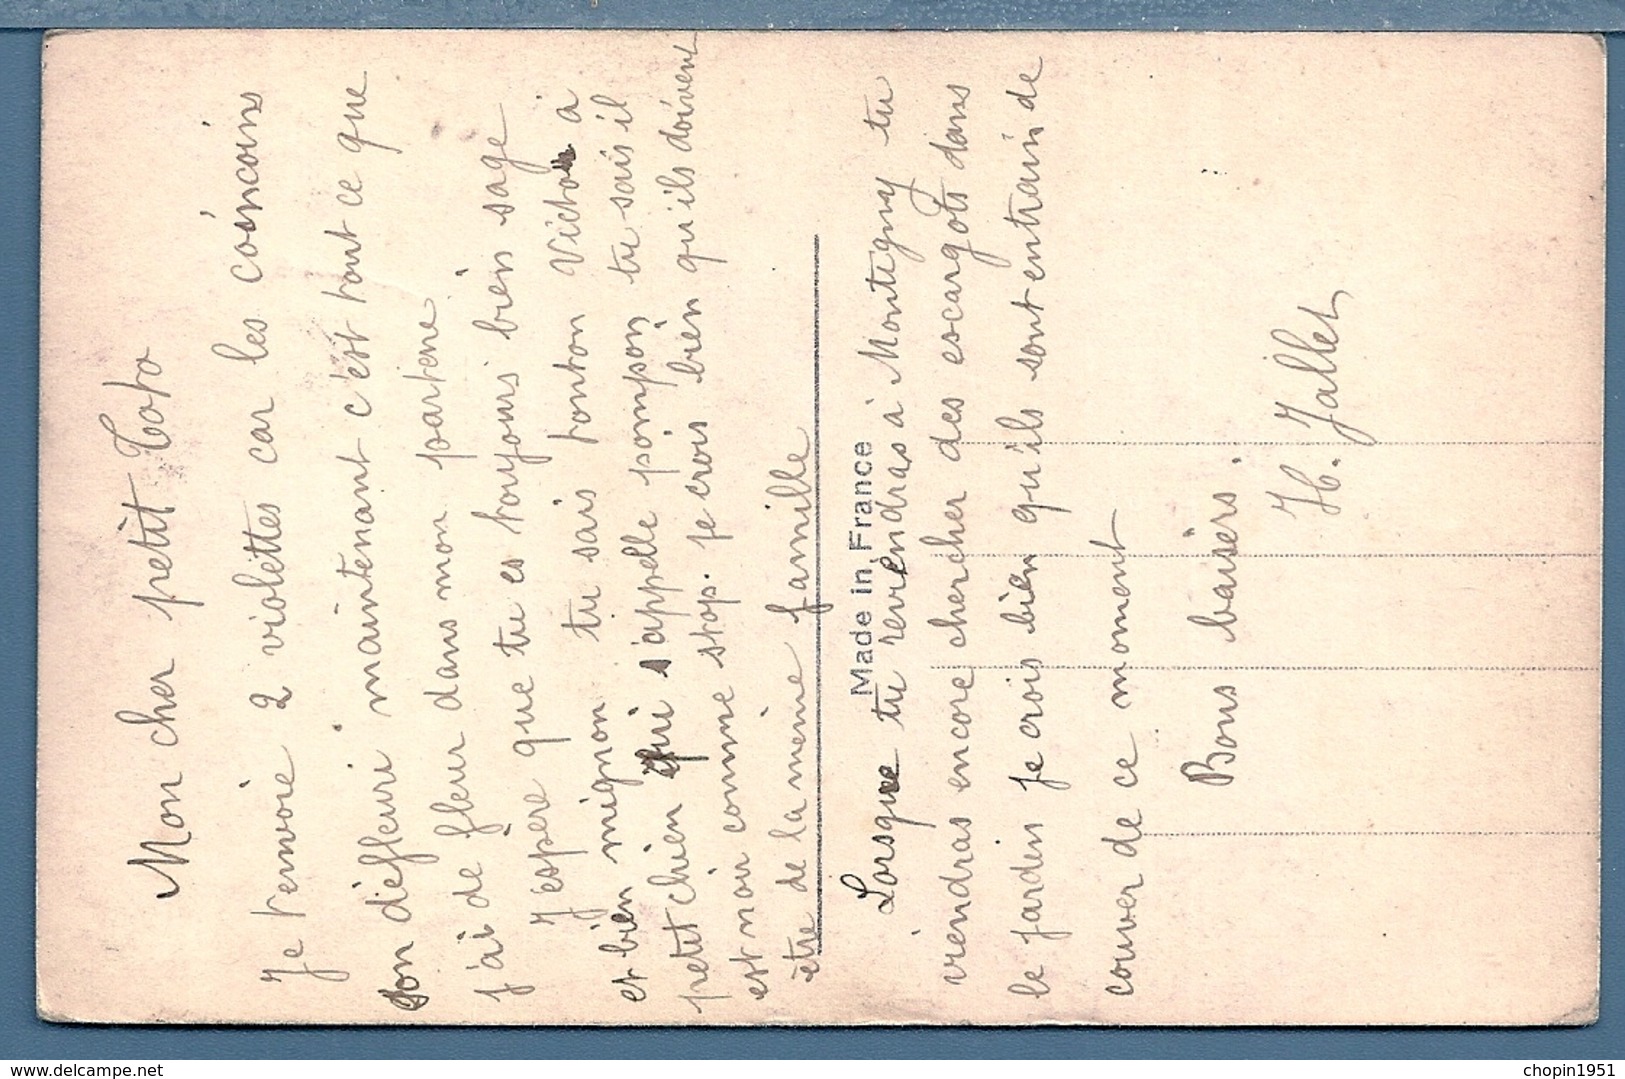 Mon cher petit Toto
Je t'envoie 2 violettes car les coincoins
son défleuri maintenant c'est tout ce que
j'ai de fleur dans mon parterre
J'espère que tu es toujours bien sage
et bien mignon tu sais tonton Victor à
petit chien qui s'appelle pompon tu sais il
est noir comme stop. je crois bien qu'ils doivent
être de la même famille
Made in France
Lorsque tu reviendras à Montigny tu
viendras encore chercher des escargots dans
le jardin je crois bien qu'ils sont entrain de
couver de ce moment
Bons baisers
H. Jallet
www.delcampe.net
chopin1951